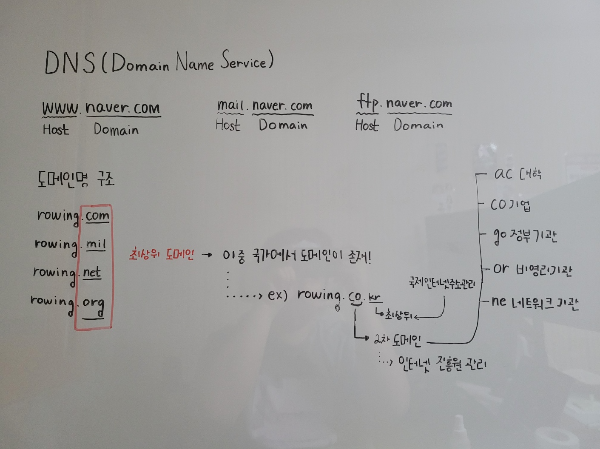 DNS (Domain Name Service)
www.naver.com
Host Domain
mail.naver.com
Host Domain
ftp.naver.com
Host Domain
도메인명 구조
rowing.com
rowing.mil
rowing.net
rowing.org
최상위 도메인 → 이중 국가에서 도메인이 존재!
ex) rowing.co.kr
최상위
국제인터넷주소관리
2차 도메인
인터넷 진흥원 관리
ac 대학
co 기업
go 정부기관
or 비영리기관
ne 네트워크 기관